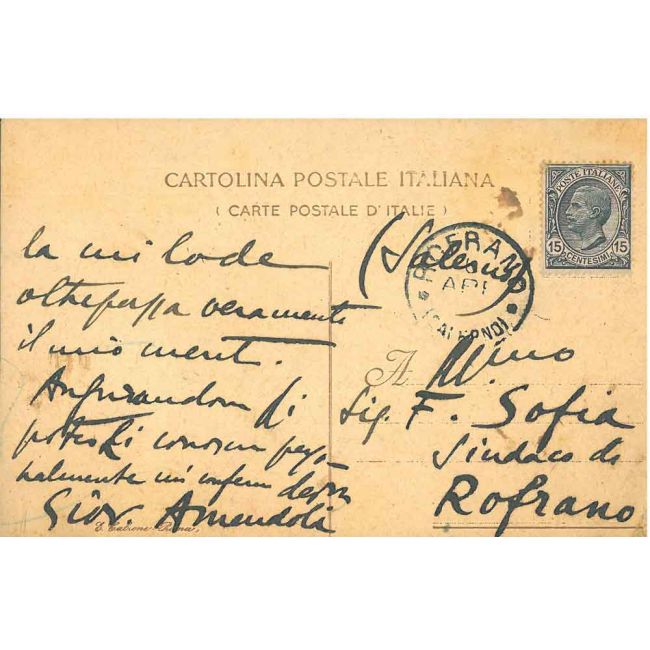 CARTOLINA POSTALE ITALIANA
( CARTE POSTALE D'ITALIE )
POSTE ITALIANE
15 15
CENTESIMI
ROFRANO
API
(SALERNO)
(Salerno)
la mi lode
oltrepassa veramente
il mio merit.
Augurandom di
poterLi conoscer perso
nalmente mi confermo
Giov. Amendola
A Ill.mo
Sig. F. Sofia
Sindaco di
Rofrano
Roma